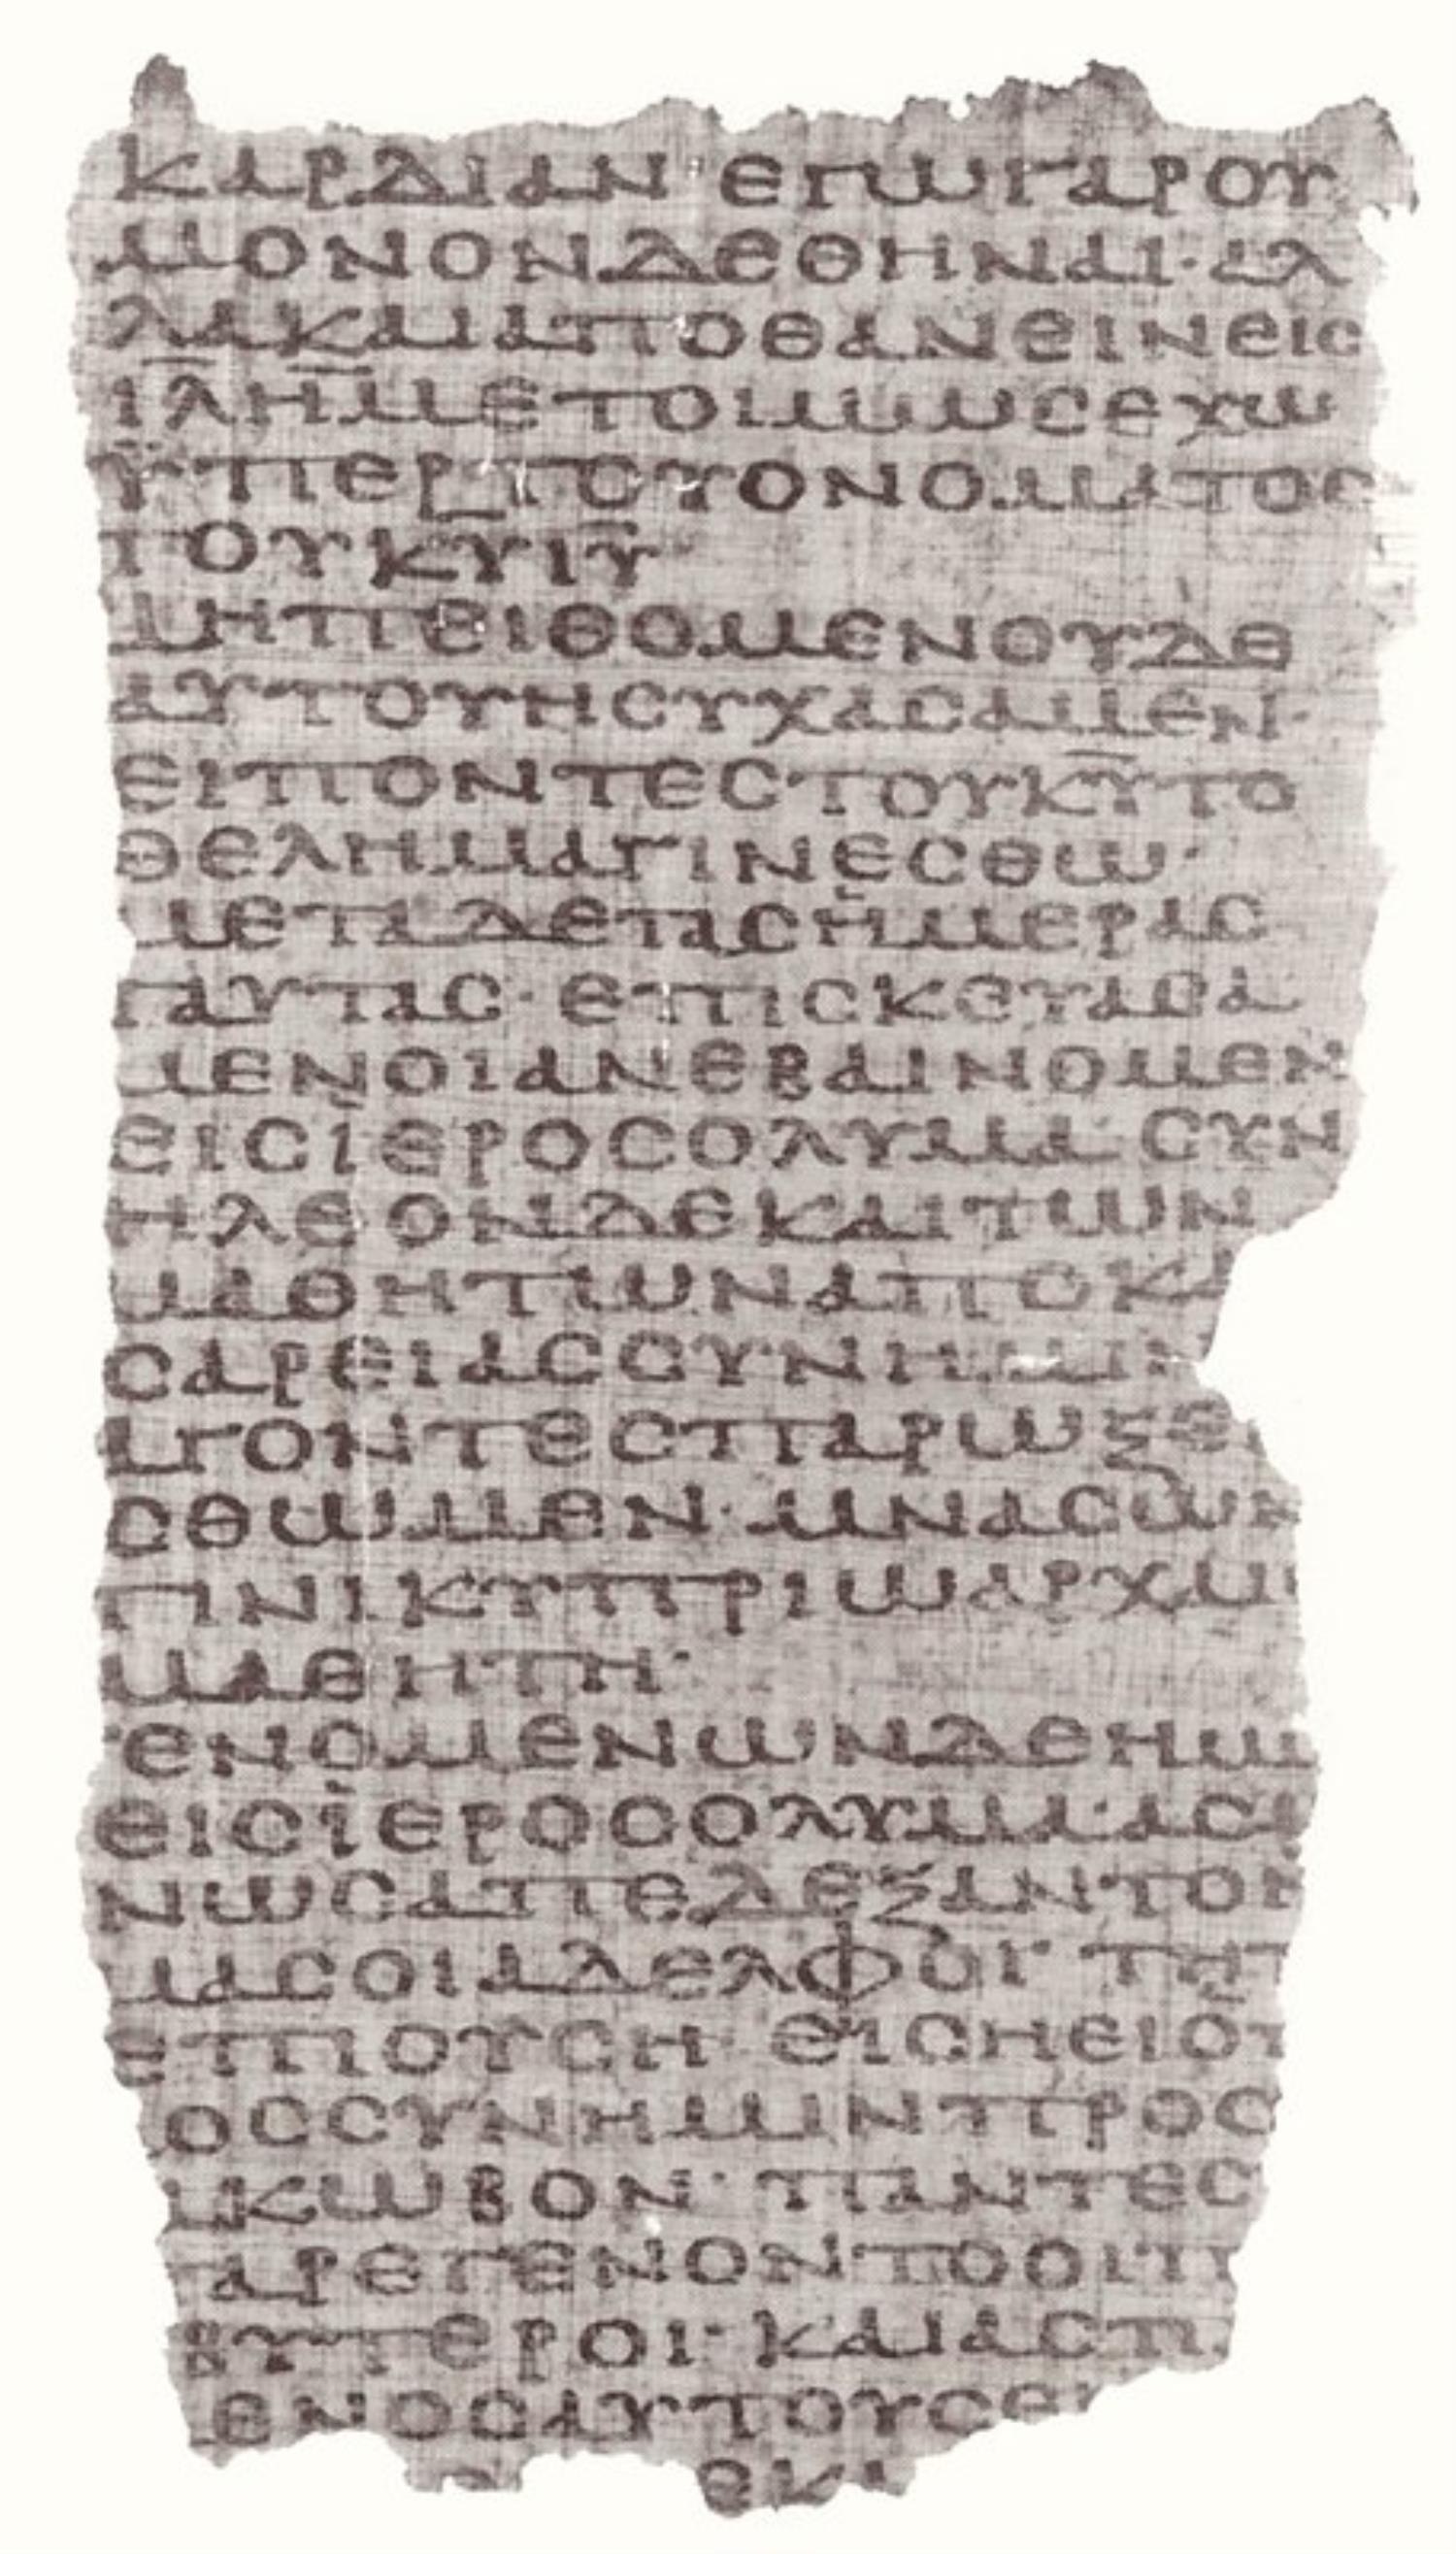 ΚΑΡΔΙΑΝ ΕΓΩΓΑΡΟΥ
ΜΟΝΟΝΔΕΘΗΝΑΙ·ΑΛ
ΛΑΚΑΙΑΠΟΘΑΝΕΙΝΕΙC
Ι̅Λ̅Η̅Μ̅ΕΤΟΙΜΩCΕΧΩ
ΫΠΕΡΤΟΥΟΝΟΜΑΤΟC
ΤΟΥΚ̅Υ̅Ι̅Υ̅·
ΜΗΠΕΙΘΟΜΕΝΟΥΔΕ
ΑΥΤΟΥΗCΥΧΑCΑΜΕΝ·
ΕΙΠΟΝΤΕCΤΟΥΚ̅Υ̅ΤΟ
ΘΕΛΗΜΑΓΙΝΕCΘΩ·
ΜΕΤΑΔΕΤΑCΗΜΕΡΑC
ΤΑΥΤΑC·ΕΠΙCΚΕΥΑCΑ
ΜΕΝΟΙΑΝΕΒΑΙΝΟΜΕΝ
ΕΙCΪΕΡΟCΟΛΥΜΑ·CΥΝ
ΗΛΘΟΝΔΕΚΑΙΤΩΝ
ΜΑΘΗΤΩΝΑΠΟΚΑ
CΑΡΕΙΑCCΥΝΗΜΙΝ
ΑΓΟΝΤΕCΠΑΡΩΞΕΝ
CΘΩΜΕΝ·ΜΝΑCΩΝ
ΤΙΝΙΚΥΠΡΙΩΑΡΧΑΙ
ΜΑΘΗΤΗ·
ΓΕΝΟΜΕΝΩΝΔΕΗΜ
ΕΙCΪΕΡΟCΟΛΥΜΑ·ΑCΜ
ΝΩCΑΠΕΔΕΞΑΝΤΟΗ
ΜΑCΟΙΑΔΕΛΦΟΙ· ΤΗ
ΕΠΙΟΥCΗ ΕΙCΗΕΙΟ
ΟCCΥΝΗΜΙΝΠΡΟC
ΑΚΩΒΟΝ· ΠΑΝΤΕC
ΠΑΡΕΓΕΝΟΝΤΟΟΙΠ
ΒΥΤΕΡΟΙ· ΚΑΙΑCΠ
ΕΝΟCΑΥΤΟΥCΕ
ΕΚ